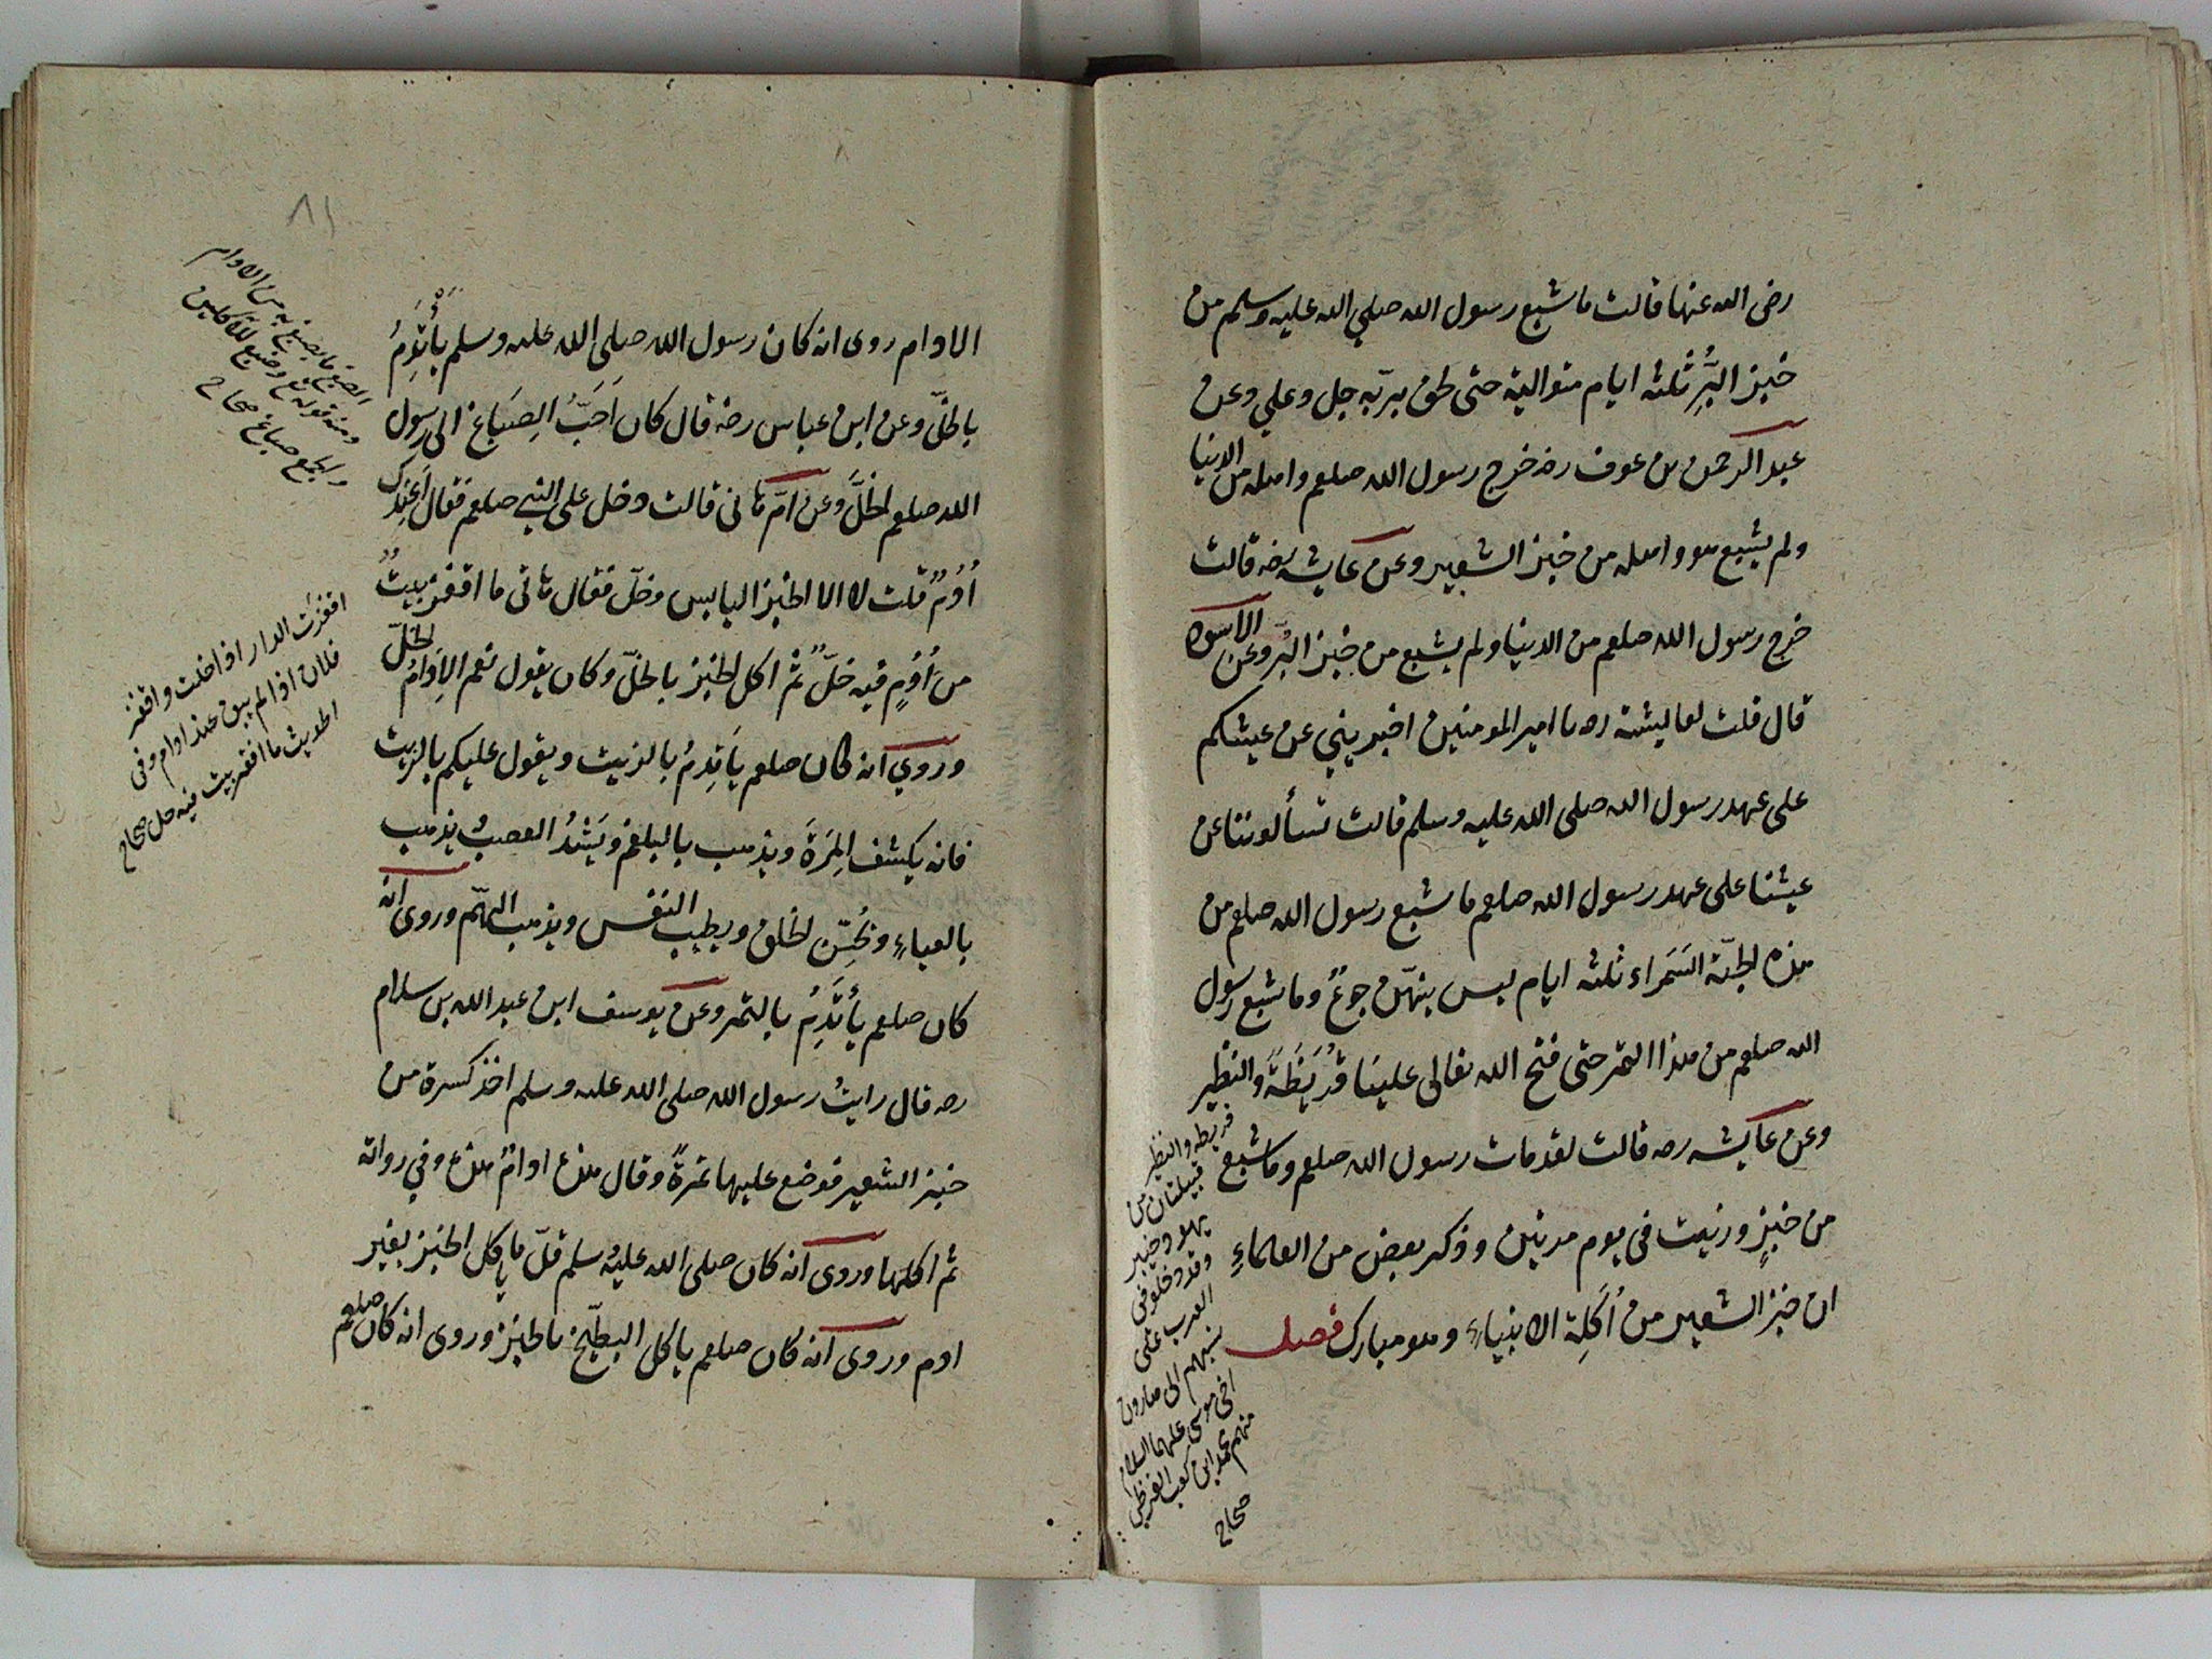 رضى الله عنها قالت ما شبع رسول الله صلي الله عليه وسلم من
خبز البُرِّ ثلثه ايام متوالية حتى لحق بربّه جل وعلي وعن
عبد الرحمن بن عوف رضه خرج رسول الله صلعم واهله من الدنيا
ولم يشبع هو واهله من خبز الشعير وعن عايشه رضه قالت
خرج رسول الله صلعم من الدنيا ولم يشبع من خبز البُرّ وعن الاسود
قال قلت لعايشة رضه يا امير المومنين اخبريني عن عيشكم
على عهد رسول الله صلى الله عليه وسلم قالت تسألوننا عن
عيشنا على عهد رسول الله صلعم ما شبع رسول الله صلعم من
هذه الحبّة السَمراء ثلثه ايام ليس بينهّن جوعٌ وما شبع رسول
الله صلعم من هذا التمر حتى فتح الله تعالى علينا قُرَيظَةَ والنظير
وعن عايشه رضه قالت لقد مات رسول الله صلعم وما شبع
من خبزٍ وزيت في يوم مرتين وذكر بعض من العلماءِ
ان خبز الشعير من اُكَلِة الانبياءِ وهو مبارك فصل
قريظه والنظير
قبيلتان من
يهود خيبر
وقد دخلو في
العرب على
نسبهم الى هارون
اخى موسى عليهما السلام
منهم محمد ابن كعب القرظي
صحاح
٨١
الادام روى انه كان رسول الله صلى الله عليه وسلم يأتَدِمُ
بالخلّ وعن ابن عباس رضه قال كان اَحَبُّ الِصَباغ الى رسول
الله صلعم الخلَّ وعن امّ هانى قالت دخل على النبي صلعم فقال اَعِندك
اُدُمٌ قلت لا الا الخبز اليابس وخلّ فقال هاتى ما اقفر بيتٌ
من اُدُمٍ فيه خلّ ثم اكل الخبز بالخلّ وكان يقول نعم الاِدَامُ الخلّ
وروي انه كان صلعم يَاتِدمُ بالزيت ويقول عليكم بالزيت
فانه يكشف المِرَةَ ويذهب بالبلغم ويَشُدُ العصبُ يذهب
بالعياءِ ويُحسّن الخلق ويطيب النفس ويذهب الهّم وروى انه
كان صلعم يأتَدِمُ بالتمر وعن يوسف ابن عبد الله بن سلام
رضه قال رايتُ رسول الله صلى الله عليه وسلم اخذ كسرة من
خبز الشعير فوضع عليها تمرةً وقال هذه ادامُ هذه وفي رواية
ثم اكلها وروى انه كان صلى الله عليه وسلم قلّ ما ياكل الخبز بغير
ادم وروى انه كان صلعم ياكل البطّيخ بالخبز وروى انه كان صلعم
الصبغ ما يصبغ به من الادام
ومنه قوله تع وصبغ للآكلين
والجمع صباغ صحاح
اقفرَت الدار اذا خلت واقفر
فلان اذا لم يبق عنده ادام وفى
الحديث ما اقفر بيت فيه خل صحاح